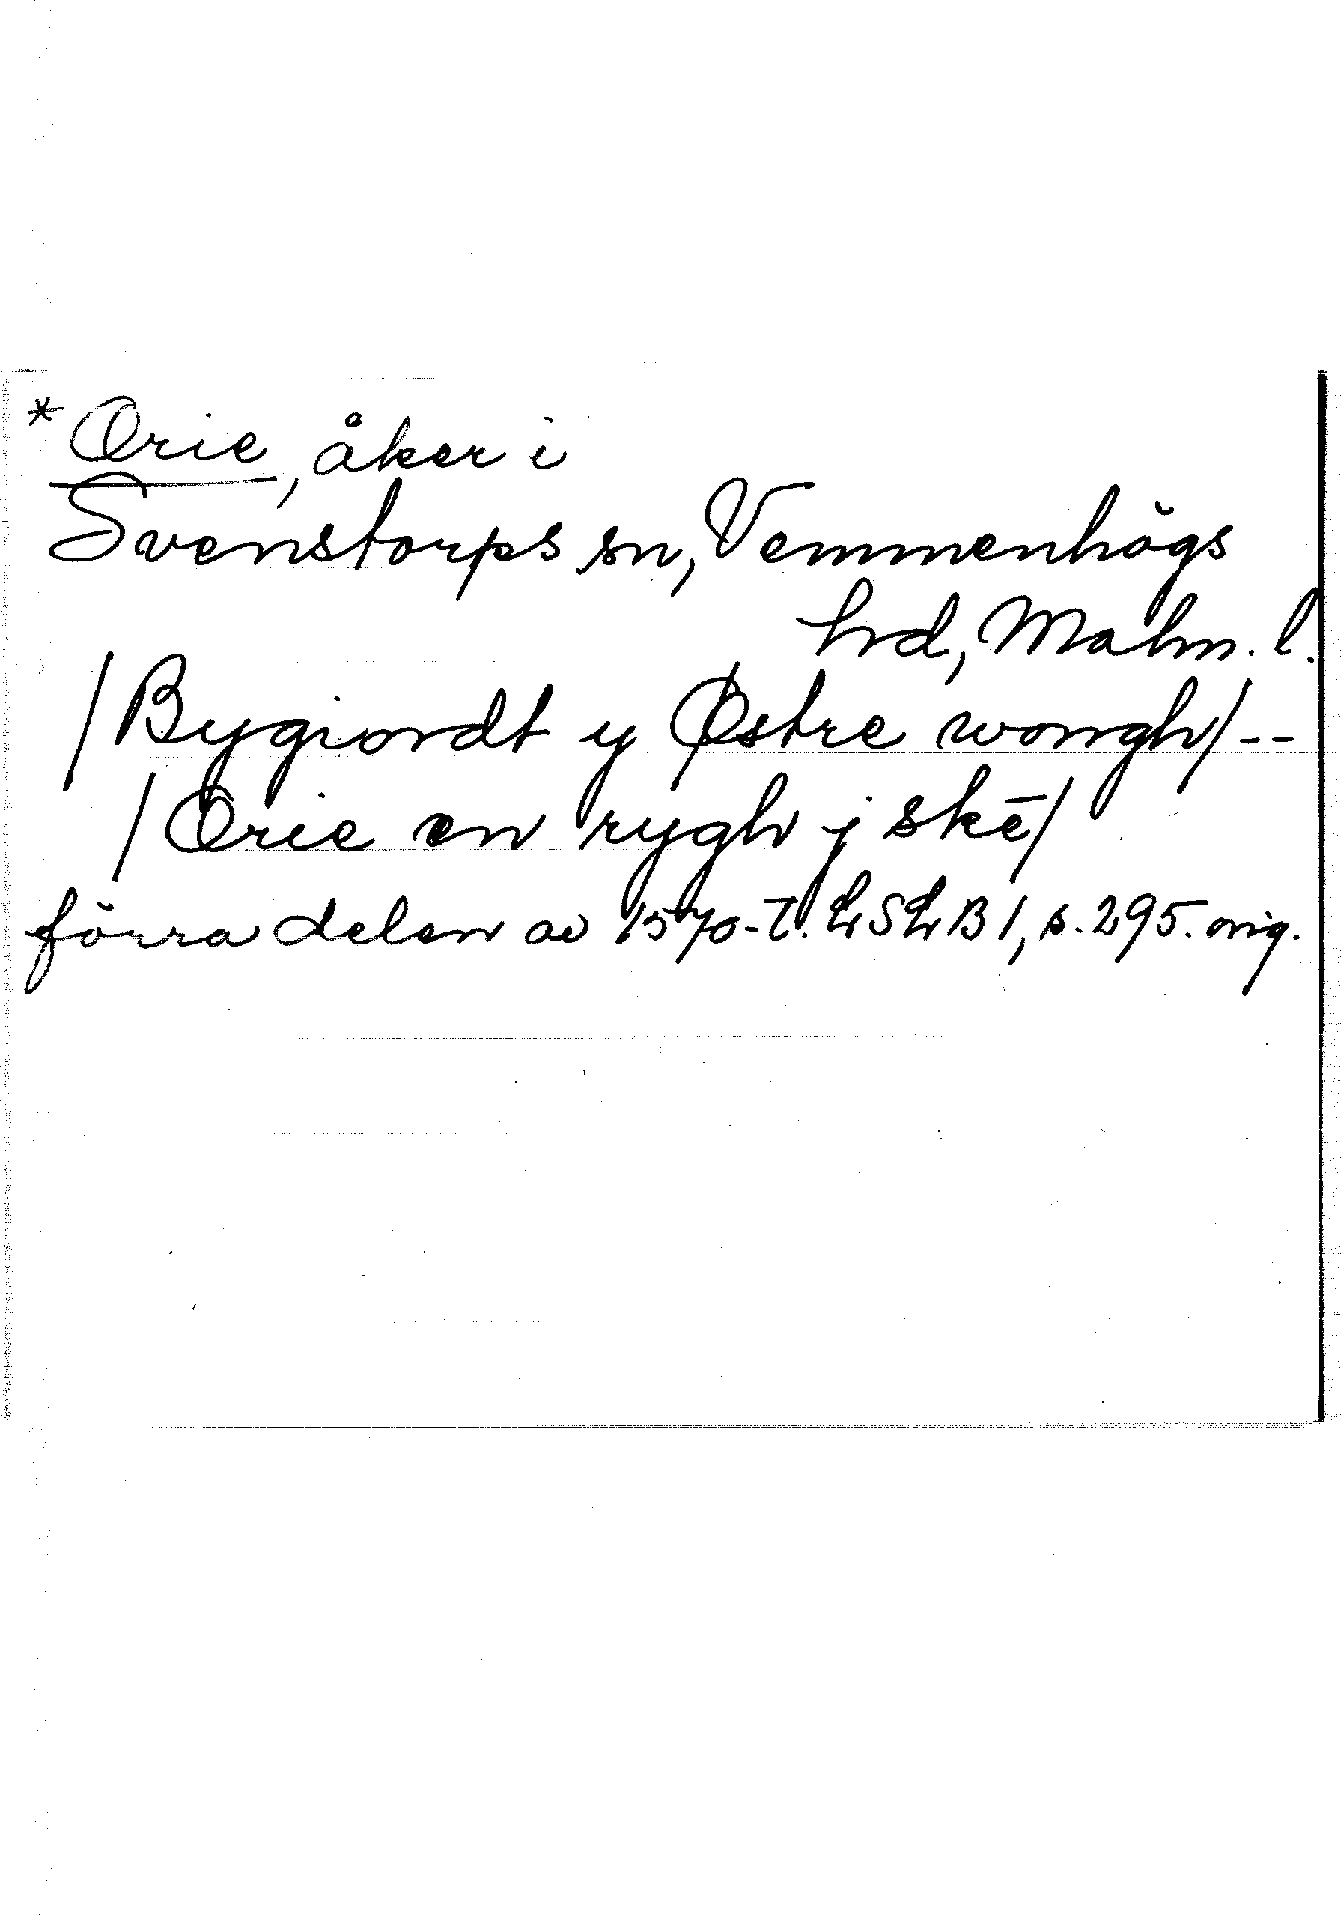 *Orie, åker i
Svenstorps sn, Vemmenhögs
hd, Malm. l.
/Bygiordt y Østre wongh/--
/Orie en rygh j skē/
förra delen av 1570-t. LSLB1, s. 295. orig.